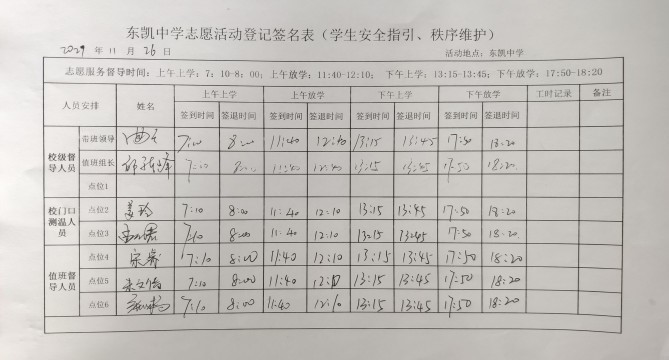 东凯中学志愿活动登记签名表（学生安全指引、秩序维护）
年 11 月 26 日 活动地点：东凯中学
志愿服务督导时间：上午上学：7：10-8：00；上午放学：11:40-12:10； 下午上学：13:15-13:45；下午放学：17:50-18:20
人员安排 姓名 上午上学 上午放学 下午上学 下午放学 工时记录 备注
签到时间 签退时间 签到时间 签退时间 签到时间 签退时间 签到时间 签退时间
校级督导人员 带班领导 8:00 11:40 13:15 13:45 17:50 18:20
值班组长 7:10 8:00 11:40 12:10 13:15 13:45 17:50 18:20
点位1
校门口测温人员 点位2 7:10 8:00 11:40 12:10 13:15 13:45 17:50 18:20
点位3 7:10 8:00 11:40 12:10 13:15 13:45 17:50 18:20
值班督导人员 点位4 7:10 8:00 11:40 12:10 13:15 13:45 17:50 18:20
点位5 7:10 8:00 11:40 12:10 13:15 13:45 17:50 18:20
点位6 7:10 8:00 11:40 12:10 13:15 13:45 17:50 18:20